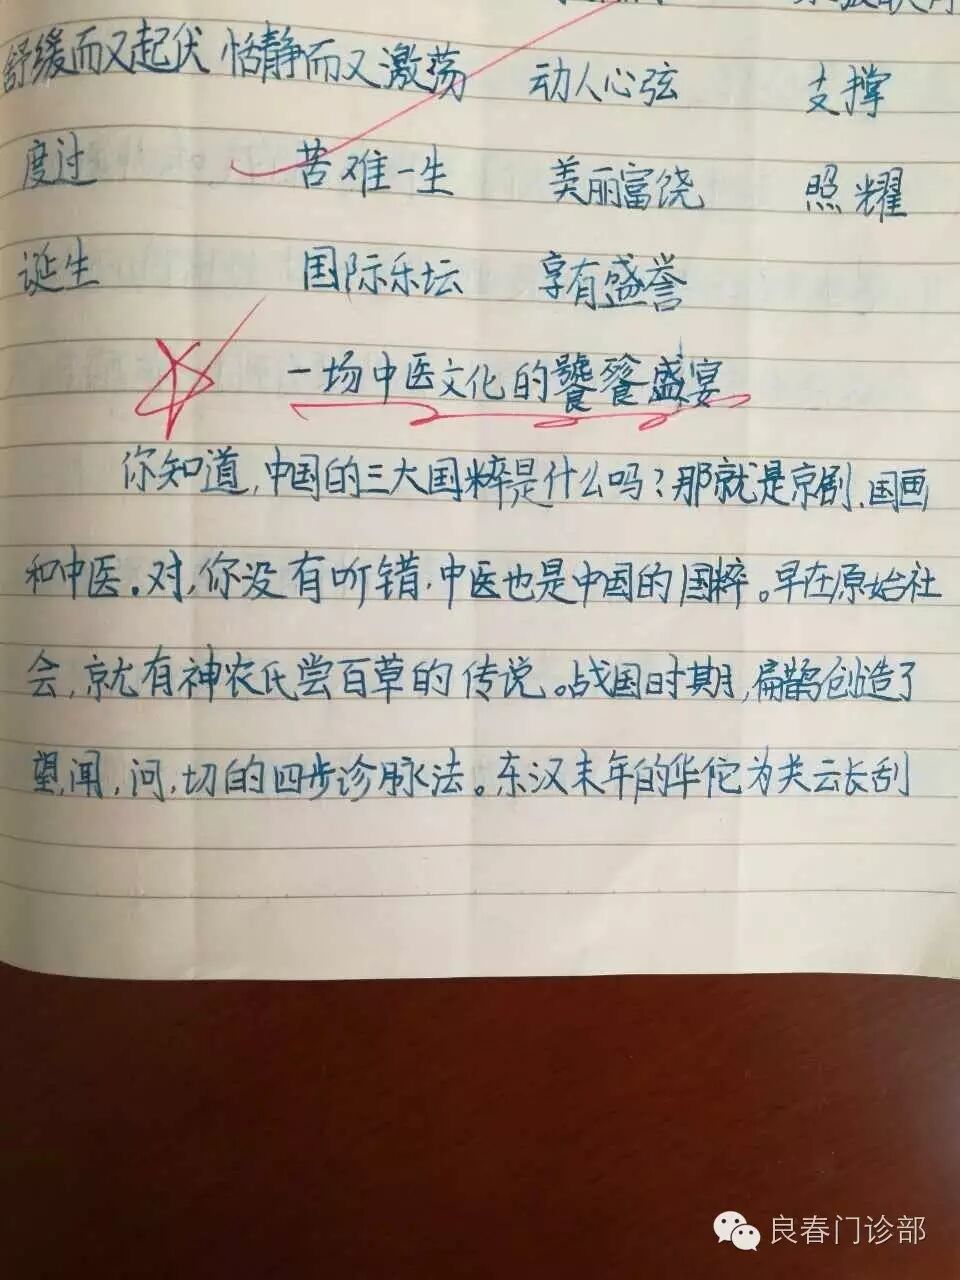 舒缓而又起伏 恬静而又激荡 动人心弦 支撑
度过 苦难一生 美丽富饶 照耀
诞生 国际乐坛 享有盛誉
一场中医文化的饕餮盛宴
你知道,中国的三大国粹是什么吗?那就是京剧、国画
和中医。对,你没有听错,中医也是中国的国粹。早在原始社
会,就有神农氏尝百草的传说。战国时期,扁鹊创造了
望,闻,问,切的四步诊脉法。东汉末年的华佗为关云长刮
良春门诊部